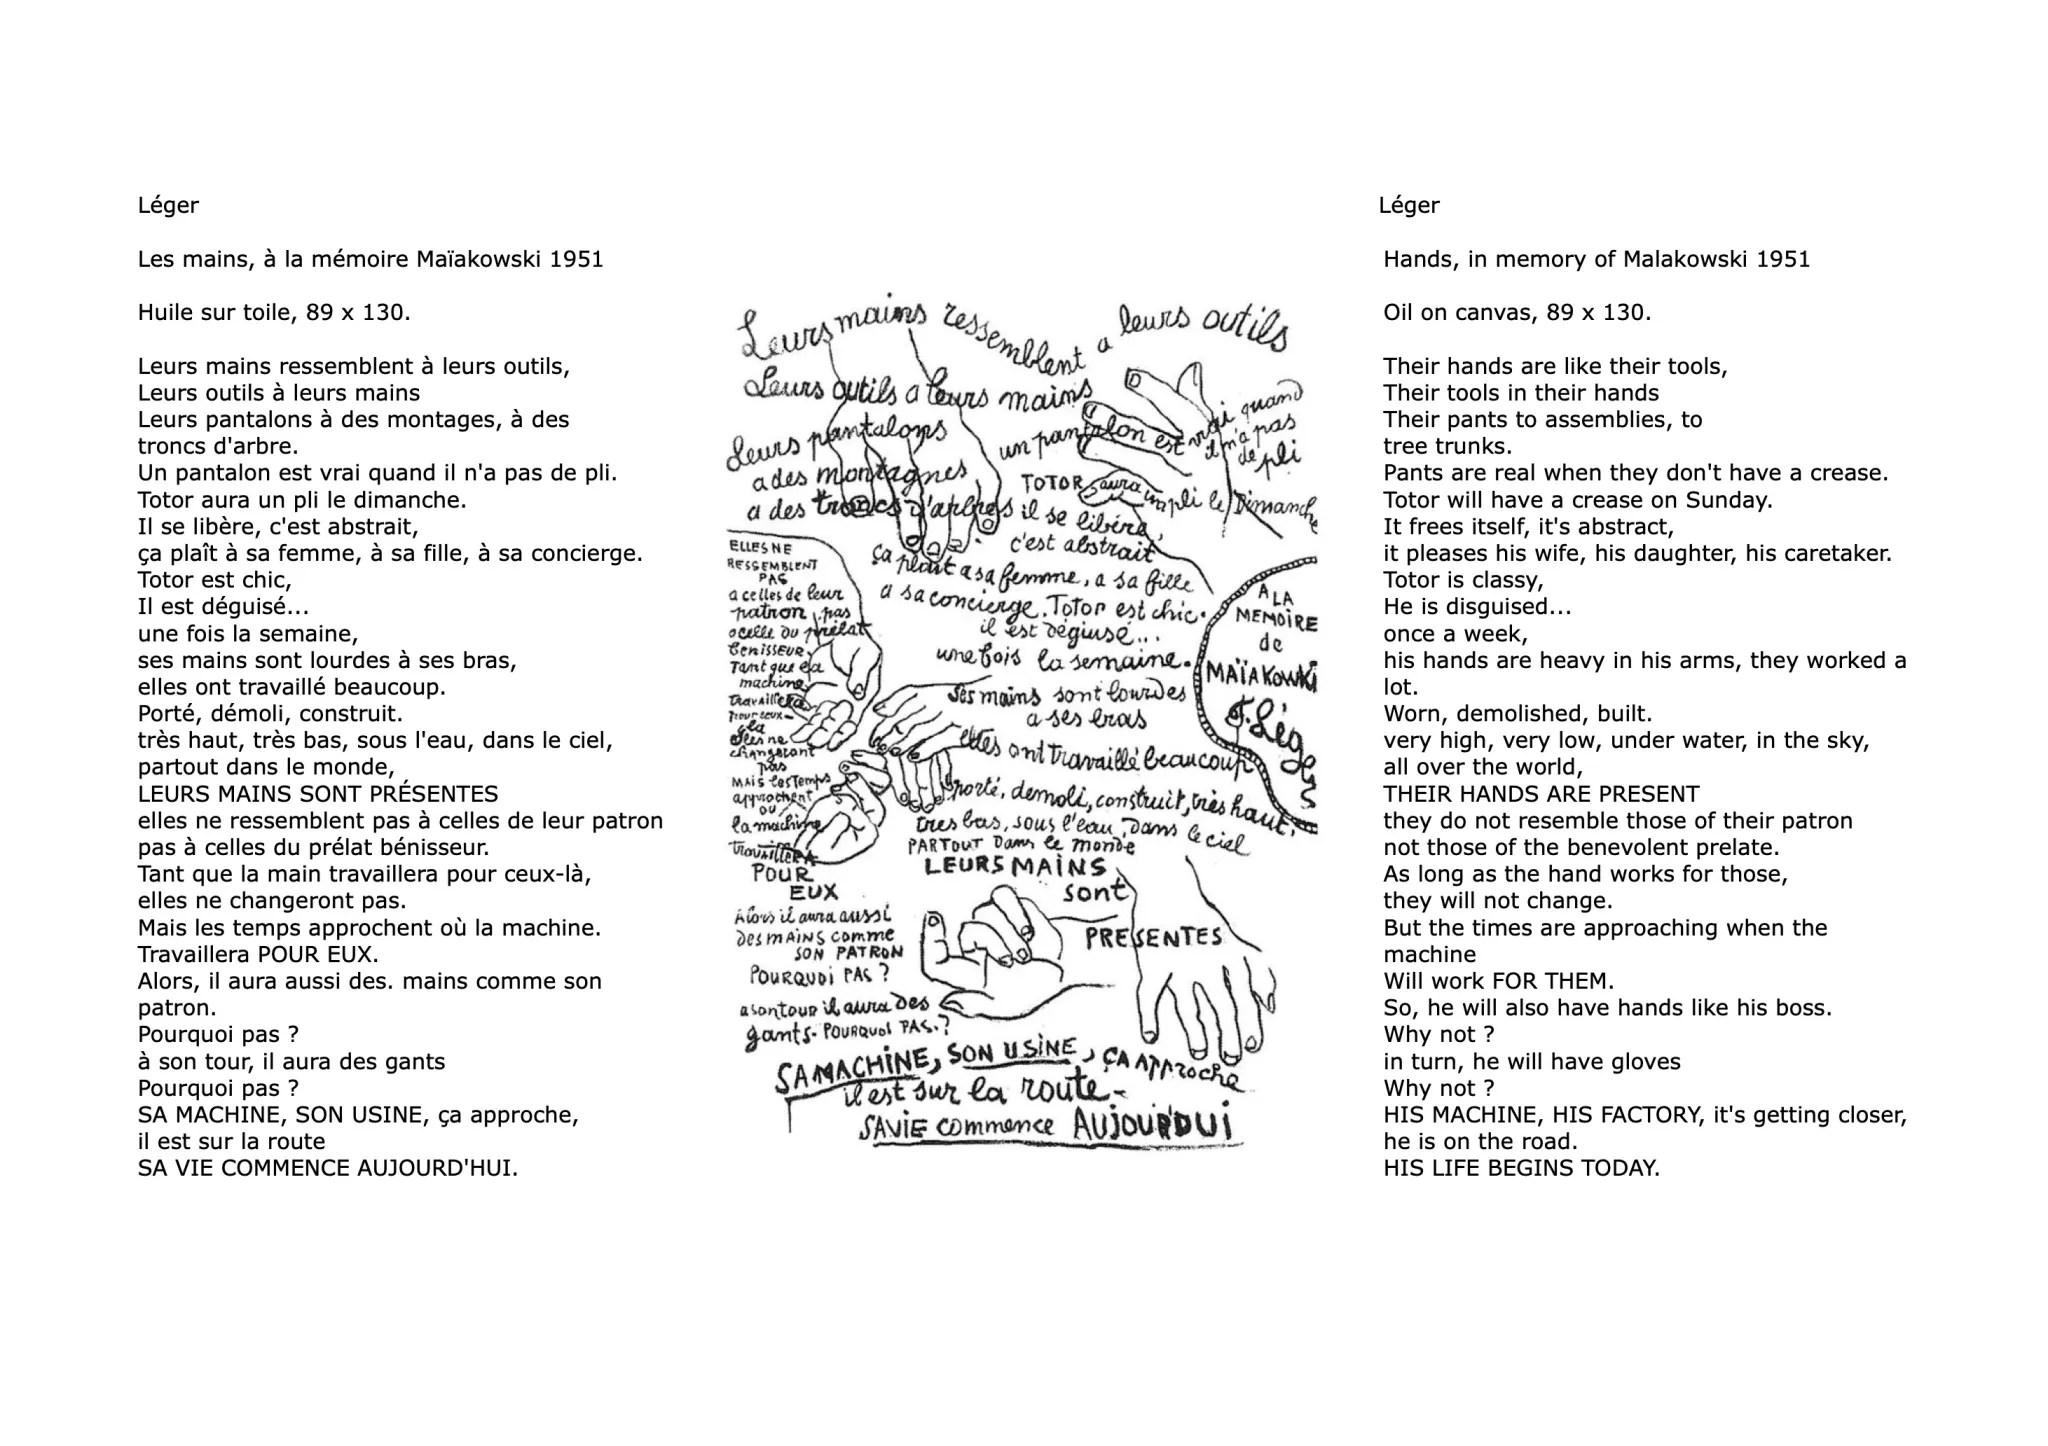 Léger
Les mains, à la mémoire Maïakowski 1951
Huile sur toile, 89 x 130.
Leurs mains ressemblent à leurs outils,
Leurs outils à leurs mains
Leurs pantalons à des montages, à des
troncs d'arbre.
Un pantalon est vrai quand il n'a pas de pli.
Totor aura un pli le dimanche.
Il se libère, c'est abstrait,
ça plaît à sa femme, à sa fille, à sa concierge.
Totor est chic,
Il est déguisé...
une fois la semaine,
ses mains sont lourdes à ses bras,
elles ont travaillé beaucoup.
Porté, démoli, construit.
très haut, très bas, sous l'eau, dans le ciel,
partout dans le monde,
LEURS MAINS SONT PRÉSENTES
elles ne ressemblent pas à celles de leur patron
pas à celles du prélat bénisseur.
Tant que la main travaillera pour ceux-là,
elles ne changeront pas.
Mais les temps approchent où la machine.
Travaillera POUR EUX.
Alors, il aura aussi des. mains comme son
patron.
Pourquoi pas ?
à son tour, il aura des gants
Pourquoi pas ?
SA MACHINE, SON USINE, ça approche,
il est sur la route
SA VIE COMMENCE AUJOURD'HUI.
Leurs mains ressemblent a leurs outils
Leurs outils a leurs mains
Leurs pantalons
a des montagnes
a des troncs d'arbres
un pantalon est vrai quand
il n'a pas
de pli
TOTOR aura un pli le Dimanche
il se libéra,
c'est abstrait
ça plait a sa femme, a sa fille
a sa concierge. Totor est chic.
il est dégiusé...
une fois la semaine.
Ses mains sont lourdes
a ses bras
elles ont travaillé beaucoup
porté, demoli, construit, très haut.
tres bas, sous l'eau, Dans le ciel
PARTOUT Dans le monde
LEURS MAINS
sont
PRESENTES
A LA
MEMOIRE
de
MAÏAKOWKI
F. Léger
ELLES NE
RESSEMBLENT
PAS
a celles de leur
patron, pas
a celle du prélat
benisseur
Tant que
machine
travaillera
pour ceux-
la
elles ne
changeront
pas
MAIS les Temps
approchent
OU
la machine
travaillera
POUR
EUX
Alors il aura aussi
des MAINS comme
SON PATRON
POURQUOI PAS ?
a son tour il aura des
gants- POURQUOI PAS.?
SA MACHINE, SON USINE, ÇA APProche
il est sur la route-
SA VIE commence AUJOURDUI
Léger
Hands, in memory of Malakowski 1951
Oil on canvas, 89 x 130.
Their hands are like their tools,
Their tools in their hands
Their pants to assemblies, to
tree trunks.
Pants are real when they don't have a crease.
Totor will have a crease on Sunday.
It frees itself, it's abstract,
it pleases his wife, his daughter, his caretaker.
Totor is classy,
He is disguised...
once a week,
his hands are heavy in his arms, they worked a
lot.
Worn, demolished, built.
very high, very low, under water, in the sky,
all over the world,
THEIR HANDS ARE PRESENT
they do not resemble those of their patron
not those of the benevolent prelate.
As long as the hand works for those,
they will not change.
But the times are approaching when the
machine
Will work FOR THEM.
So, he will also have hands like his boss.
Why not ?
in turn, he will have gloves
Why not ?
HIS MACHINE, HIS FACTORY, it's getting closer,
he is on the road.
HIS LIFE BEGINS TODAY.